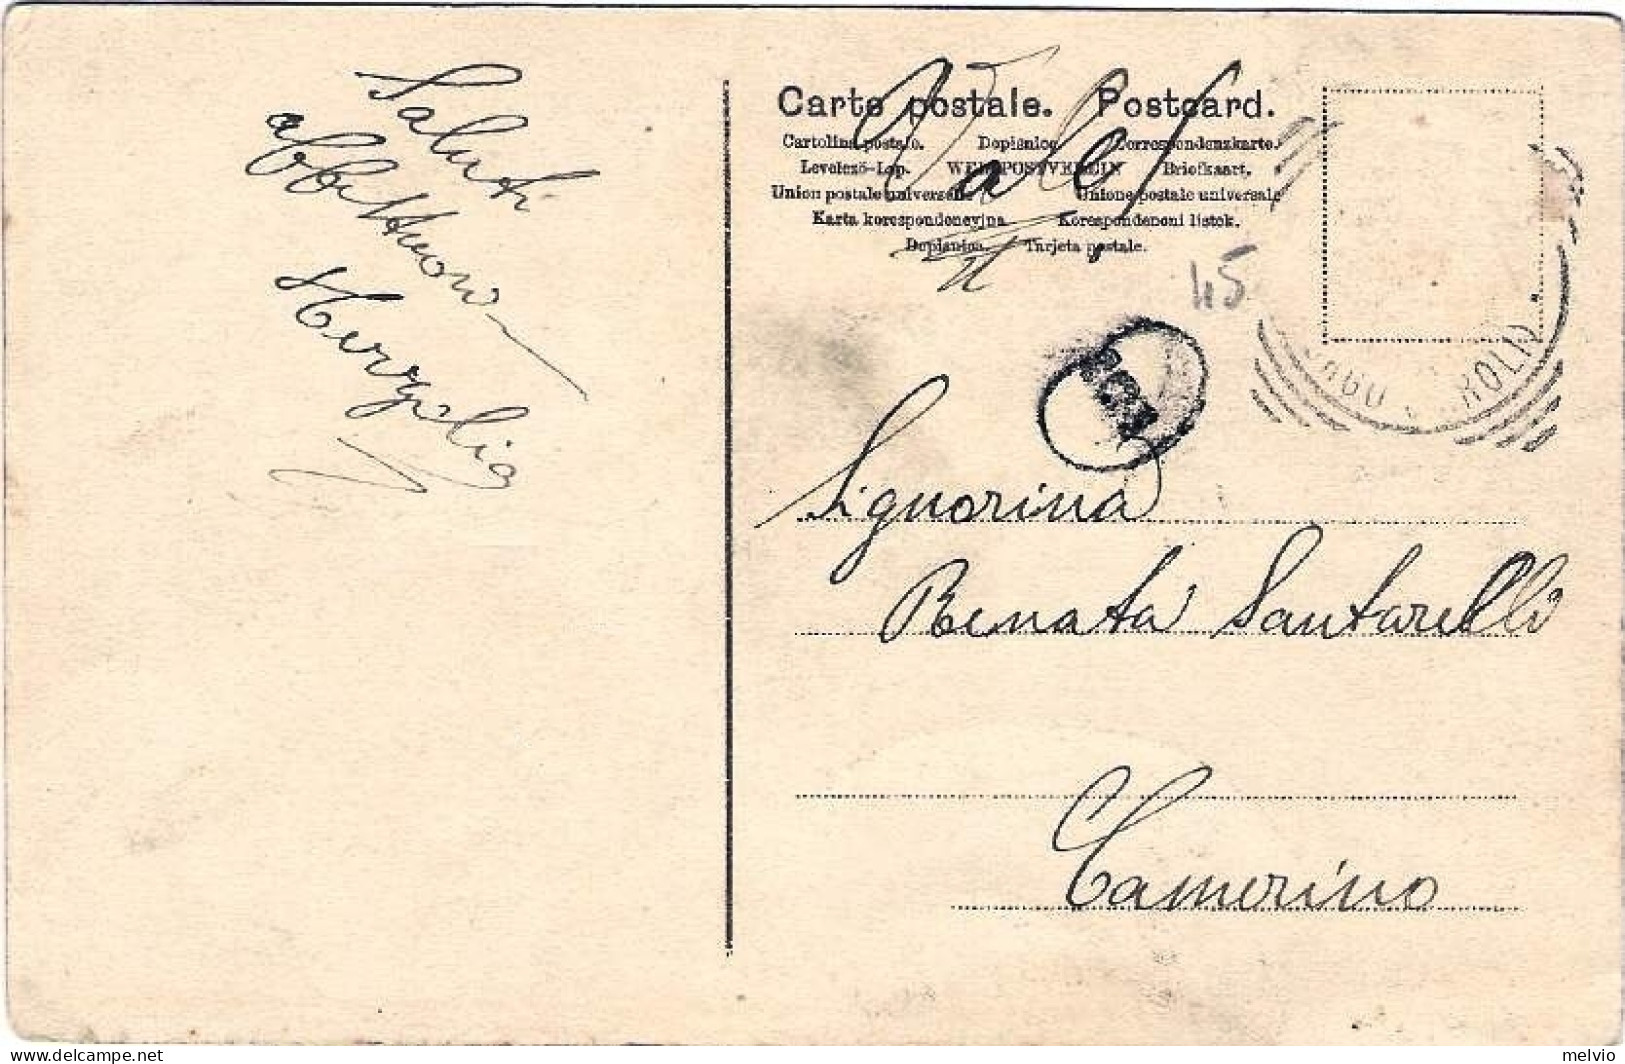 Saluti
affettuosi
Carte postale. Postcard.
Cartolina postale. Dopisnice Correspondenzkarte.
Levelező-Lap. WELTPOSTVEREIN Briefkaart.
Union postale universelle Unione postale universale
Karta korespondencyjna Korespondencni listek.
Dopisnica. Tarjeta postale.
45
Signorina
Renata Santarelli
Camerino
delcampe.net
melvio